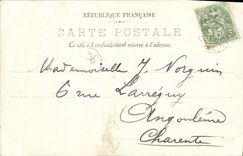 RÉPUBLIQUE FRANÇAISE
CARTE POSTALE
Ce côté est exclusivement réservé à l'adresse.
Mademoiselle J. Norguin
6 rue Larréguy
Angoulême
Charente